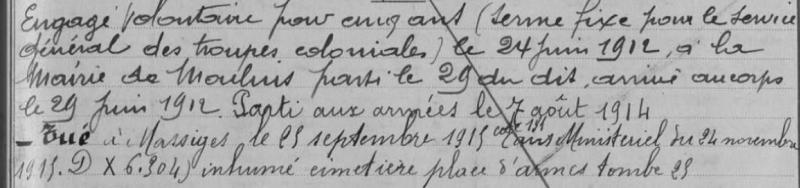 Engagé Volontaire pour cinq ans (terme fixe pour le service
Général des troupes coloniales) le 24 Juin 1912, à la
Mairie de Moulins parti le 29 du dit, arrivé au corps
le 29 Juin 1912. Parti aux armées le 7 août 1914
- Tué à Massiges le 25 septembre 1915 Avis Ministeriel du 24 novembre
1915. D X 6.304) inhumé cimetière place d'armes tombe 25